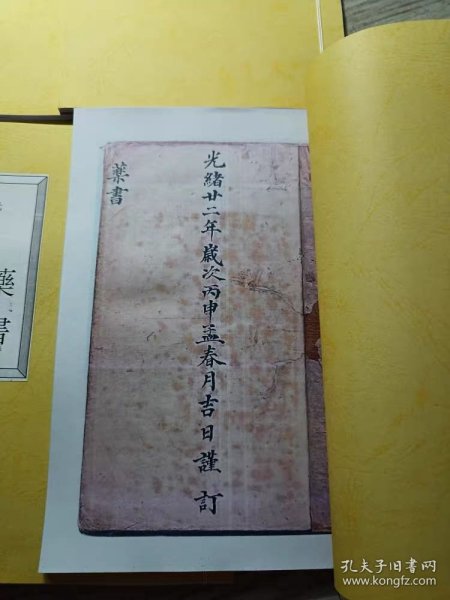 光緒廿二年歲次丙申孟春月吉日謹訂
藥書
藥書
孔夫子旧书网
www.kongfz.com